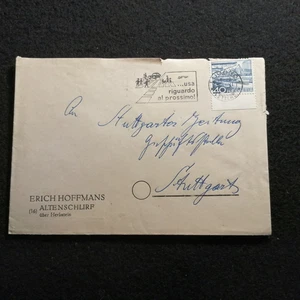 riguardo
al prossimo!
40
An
Stuttgarter Zeitung
Geschäftsstelle
Stuttgart
ERICH HOFFMANS
(16) ALTENSCHLIRF
über Herbstein